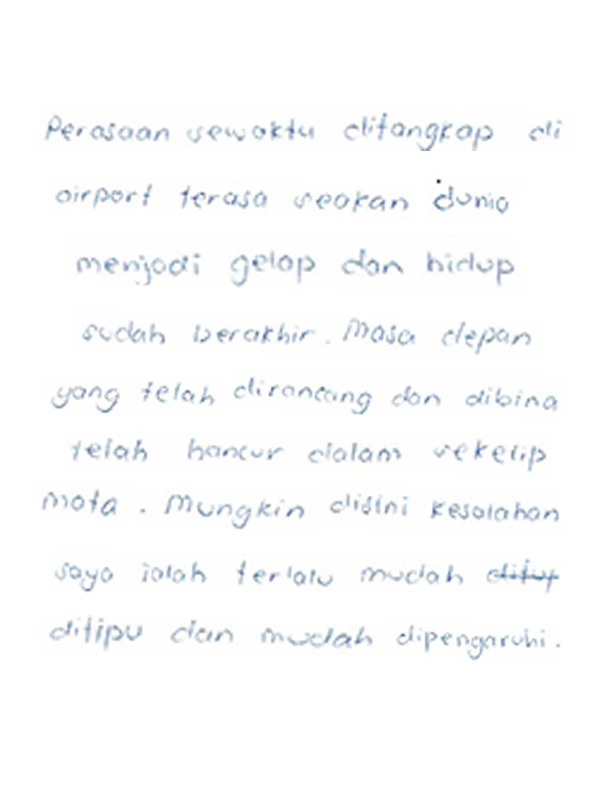 Perasaan sewaktu ditangkap di
airport terasa seakan dunia
menjadi gelap dan hidup
sudah berakhir. Masa depan
yang telah dirancang dan dibina
telah hancur dalam sekelip
mata. Mungkin disini kesalahan
saya ialah terlalu mudah
ditipu dan mudah dipengaruhi.